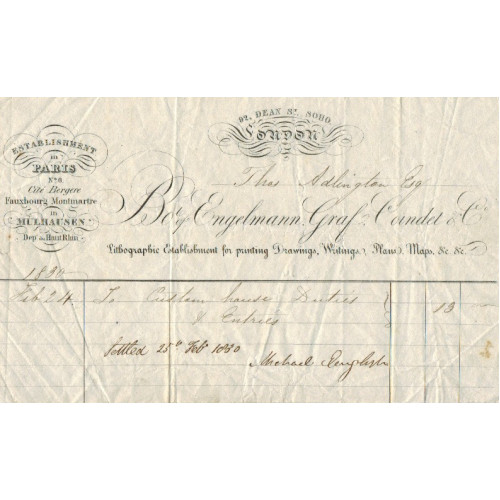 92, DEAN St. SOHO
LONDON
ESTABLISHMENT
in
PARIS
No. 6
Cité Bergere
Fauxbourg Montmartre
in
MÜLHAUSEN
Dep. du Haut Rhin
Thos Adlington Esq
Bot. of Engelmann, Graf, Coindet & Co.
Lithographic Establishment for printing Drawings, Writings, Plans, Maps, &c. &c.
Feb 24 To Custom house Duties
& Entries 13
Settled 25th Feby 1830
Michael English